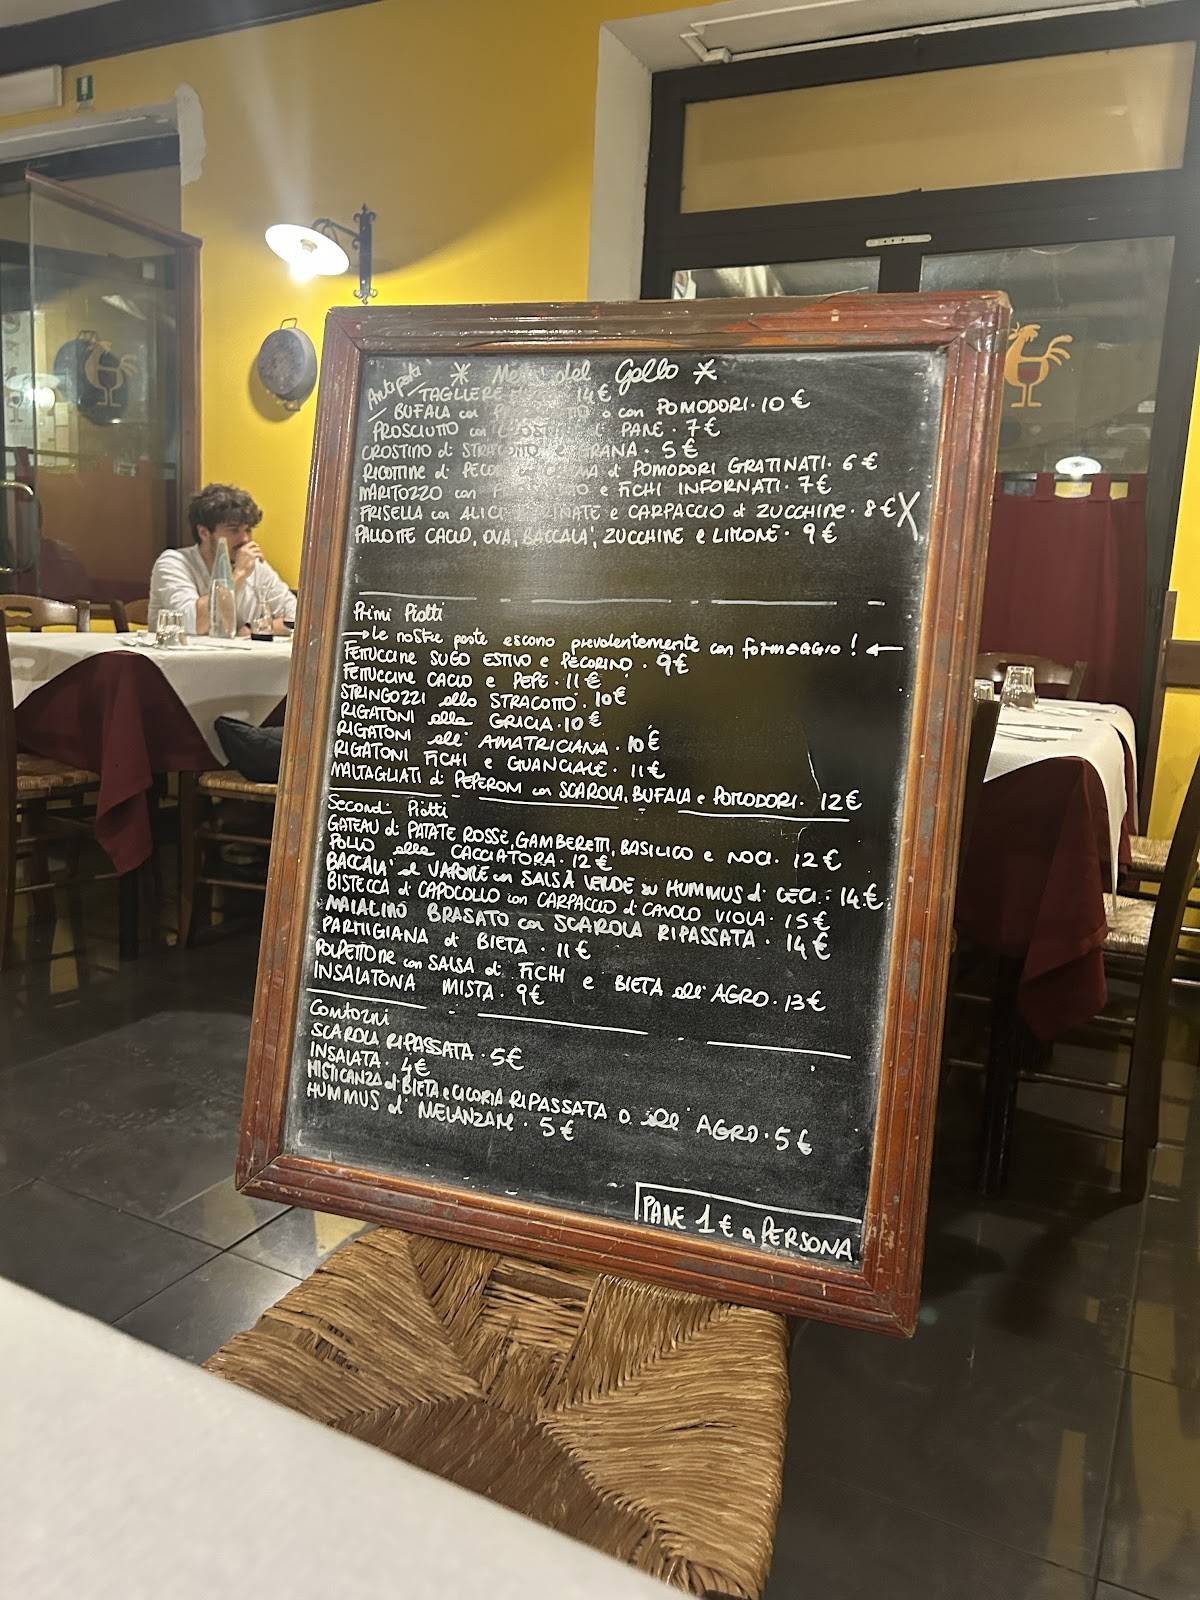 * Menù del Gallo *
Antipasti
TAGLIERE 14€
BUFALA con o con POMODORI. 10€
PROSCIUTTO con PANE. 7€
CROSTINO di STRACOTTO GRANA. 5€
RICOTTINE di di POMODORI GRATINATI. 6€
MARITOZZO con e FICHI INFORNATI. 7€
FRISELLA con ALICI e CARPACCIO di ZUCCHINE. 8€ X
PALLOTTE CACIO, OVA, BACCALA', ZUCCHINE e LIMONE. 9€
Primi Piatti
→ Le nostre paste escono prevalentemente con formaggio! ←
FETTUCCINE SUGO ESTIVO e PECORINO. 9€
FETTUCCINE CACIO e PEPE. 11€
STRINGOZZI allo STRACOTTO. 10€
RIGATONI alla GRICIA. 10€
RIGATONI all' AMATRICIANA. 10€
RIGATONI FICHI e GUANCIALE. 11€
MALTAGLIATI di PEPERONI con SCAROLA, BUFALA e POMODORI. 12€
Secondi Piatti
GATEAU di PATATE ROSSE, GAMBERETTI, BASILICO e NOCI. 12€
POLLO alla CACCIATORA. 12€
BACCALA' al VAPORE con SALSA VERDE su HUMMUS di CECI. 14€
BISTECCA di CAPOCOLLO con CARPACCIO di CAVOLO VIOLA. 15€
MAIALINO BRASATO con SCAROLA RIPASSATA. 14€
PARMIGIANA di BIETA. 11€
POLPETTONE con SALSA di FICHI e BIETA all' AGRO. 13€
INSALATONA MISTA. 9€
Contorni
SCAROLA RIPASSATA. 5€
INSALATA. 4€
MISTICANZA di BIETA e CICORIA RIPASSATA o all' AGRO. 5€
HUMMUS di MELANZANE. 5€
PANE 1€ a PERSONA